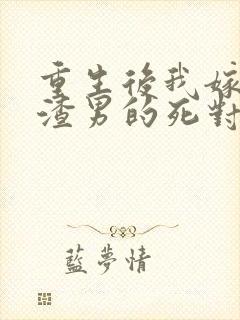 重生後我嫁
渣男的死對
藍夢情